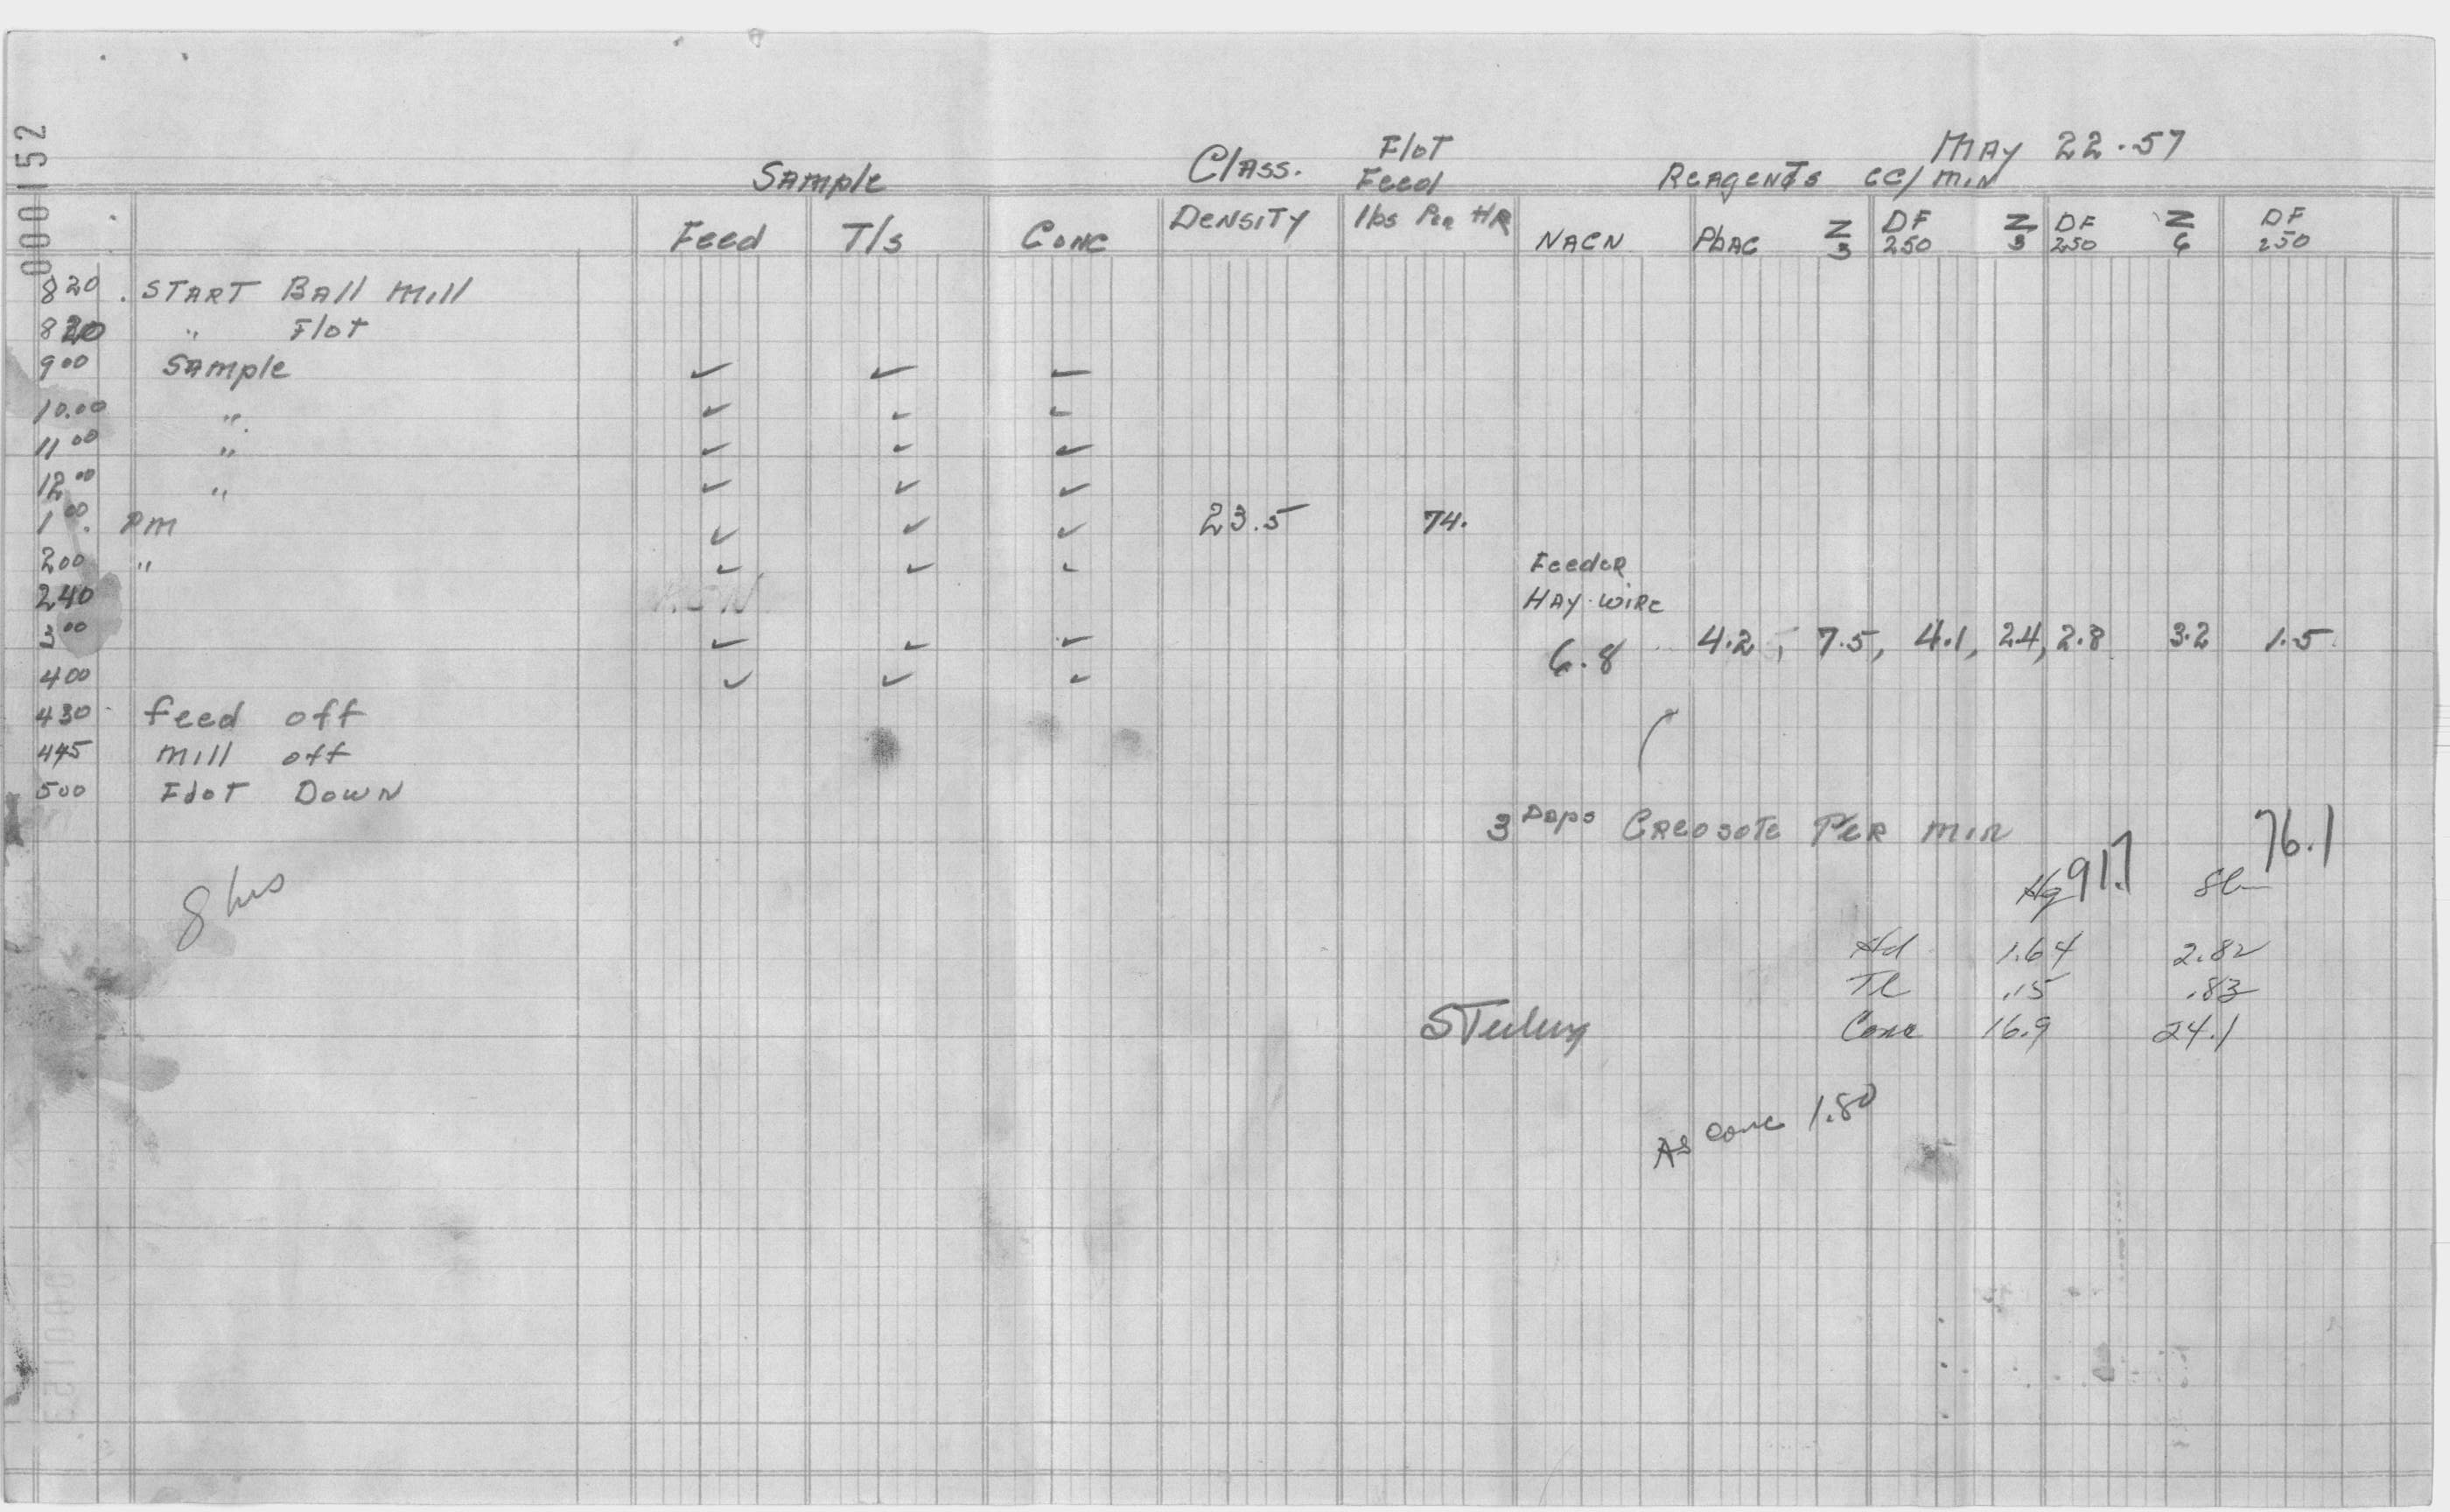 000152
MAY 22.57
Sample Class. Flot Feed Reagents cc/min
Feed T/s Conc DENSITY lbs Per HR NACN PbAC Z3 DF250 Z3 DF250 Z6 DF250
8 20 . START Ball Mill
8 20 " Flot
9 00 Sample ✓ ✓ ✓
10.00 " ✓ ✓ ✓
11 00 " ✓ ✓ ✓
12 00 " ✓ ✓ ✓
1 00. PM ✓ ✓ ✓ 23.5 74.
2 00 " ✓ ✓ ✓ Feeder
2 40 HAY-WIRE
3 00 ✓ ✓ ✓ 6.8 4.2, 7.5, 4.1, 2.4, 2.8 3.2 1.5
4 00 ✓ ✓ ✓
4 30 feed off
4 45 mill off
5 00 Flot Down
3 Drps Creosote Per min
8 hrs
Hg 91.7 Sb 76.1
Hd 1.64 2.82
Tl .15 .83
Conc 16.9 24.1
As Conc 1.80